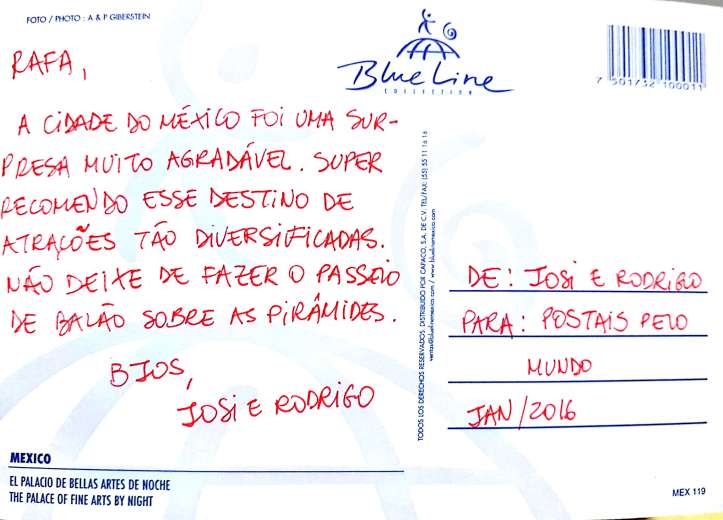 FOTO / PHOTO : A & P GIBERSTEIN
Blue Line
COLLECTION
7 501732 100011
RAFA,
A CIDADE DO MÉXICO FOI UMA SUR-
PRESA MUITO AGRADÁVEL. SUPER
RECOMENDO ESSE DESTINO DE
ATRAÇÕES TÃO DIVERSIFICADAS.
NÃO DEIXE DE FAZER O PASSEIO
DE BALÃO SOBRE AS PIRÂMIDES.
BJOS,
JOSI E RODRIGO
TODOS LOS DERECHOS RESERVADOS. DISTRIBUIDO POR CAPACO, S.A. DE C.V. TEL/FAX: (55) 55 11 16 16
ventas@bluelinemexico.com / www.bluelinemexico.com
DE: JOSI E RODRIGO
PARA: POSTAIS PELO
MUNDO
JAN/2016
MEXICO
EL PALACIO DE BELLAS ARTES DE NOCHE
THE PALACE OF FINE ARTS BY NIGHT
MEX 119